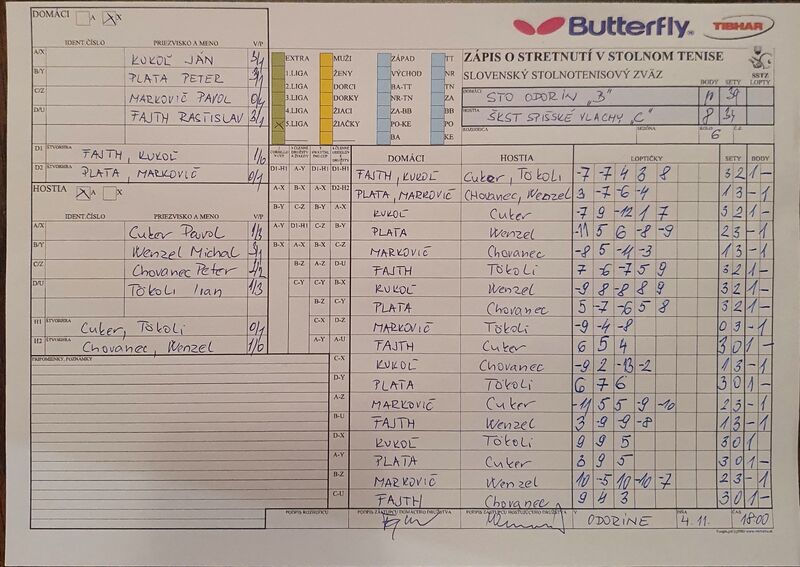 DOMÁCI A X
Butterfly TIBHAR
IDENT.ČÍSLO PRIEZVISKO A MENO V/P
A/X KUKOĽ JÁN 3/1
B/Y PLATA PETER 3/1
C/Z MARKOVIČ PAVOL 0/4
D/U FAJTH RASTISLAV 3/1
D1 ŠTVORHRA FAJTH, KUKOĽ 1/0
D2 ŠTVORHRA PLATA, MARKOVIČ 0/1
HOSTIA A X
IDENT.ČÍSLO PRIEZVISKO A MENO V/P
A/X Cuker Pavol 1/3
B/Y Wenzel Michal 3/1
C/Z Chovanec Peter 2/2
D/U Tökoli 1/3
H1 ŠTVORHRA Cuker, Tökoli 0/1
H2 ŠTVORHRA Chovanec, Wenzel 1/0
PRIPOMIENKY, POZNÁMKY
EXTRA MUŽI ZÁPAD TT
1.LIGA ŽENY VÝCHOD NR
2.LIGA DORCI BA-TT TN
3.LIGA DORKY NR-TN ZA
4.LIGA ŽIACI ZA-BB BB
5.LIGA ŽIAČKY PO-KE PO
BA KE
ZÁPIS O STRETNUTÍ V STOLNOM TENISE
SLOVENSKÝ STOLNOTENISOVÝ ZVÄZ SSTZ
BODY SETY LOPTY
DOMÁCI STO ODORÍN „B"
HOSTIA ŠKST SPIŠSKÉ VLACHY „C" 8 34
ROZHODCA SEZÓNA KOLO 6 Č.
DOMÁCI HOSTIA LOPTIČKY SETY BODY
FAJTH, KUKOĽ Cuker, Tökoli -7 -7 4 3 8 3 2 1 -
PLATA, MARKOVIČ Chovanec, Wenzel 3 -7 -6 -4 1 3 - 1
KUKOĽ Cuker -7 9 -12 1 7 3 2 1 -
PLATA Wenzel -11 5 6 -8 -9 2 3 - 1
MARKOVIČ Chovanec -8 5 -11 -3 1 3 - 1
FAJTH Tökoli 7 -6 -7 5 9 3 2 1 -
KUKOĽ Wenzel -9 8 -8 8 9 3 2 1 -
PLATA Chovanec 5 -7 -6 5 8 3 2 1 -
MARKOVIČ Tökoli -9 -4 -8 0 3 - 1
FAJTH Cuker 6 5 4 3 0 1 -
KUKOĽ Chovanec -9 2 -13 -2 1 3 - 1
PLATA Tökoli 6 7 6 3 0 1 -
MARKOVIČ Cuker -11 5 5 -9 -10 2 3 - 1
FAJTH Wenzel 3 -9 -9 -8 1 3 - 1
KUKOĽ Tökoli 9 9 5 3 0 1
PLATA Cuker 3 9 5 3 0 1 -
MARKOVIČ Wenzel 10 -5 10 -10 -7 2 3 - 1
FAJTH Chovanec 9 4 3 3 0 1 -
PODPIS ROZHODCU PODPIS ZÁSTUPCU DOMÁCEHO DRUŽSTVA PODPIS ZÁSTUPCU HOSŤUJÚCEHO DRUŽSTVA V ODORÍNE DŇA 4.11. ČAS 18:00